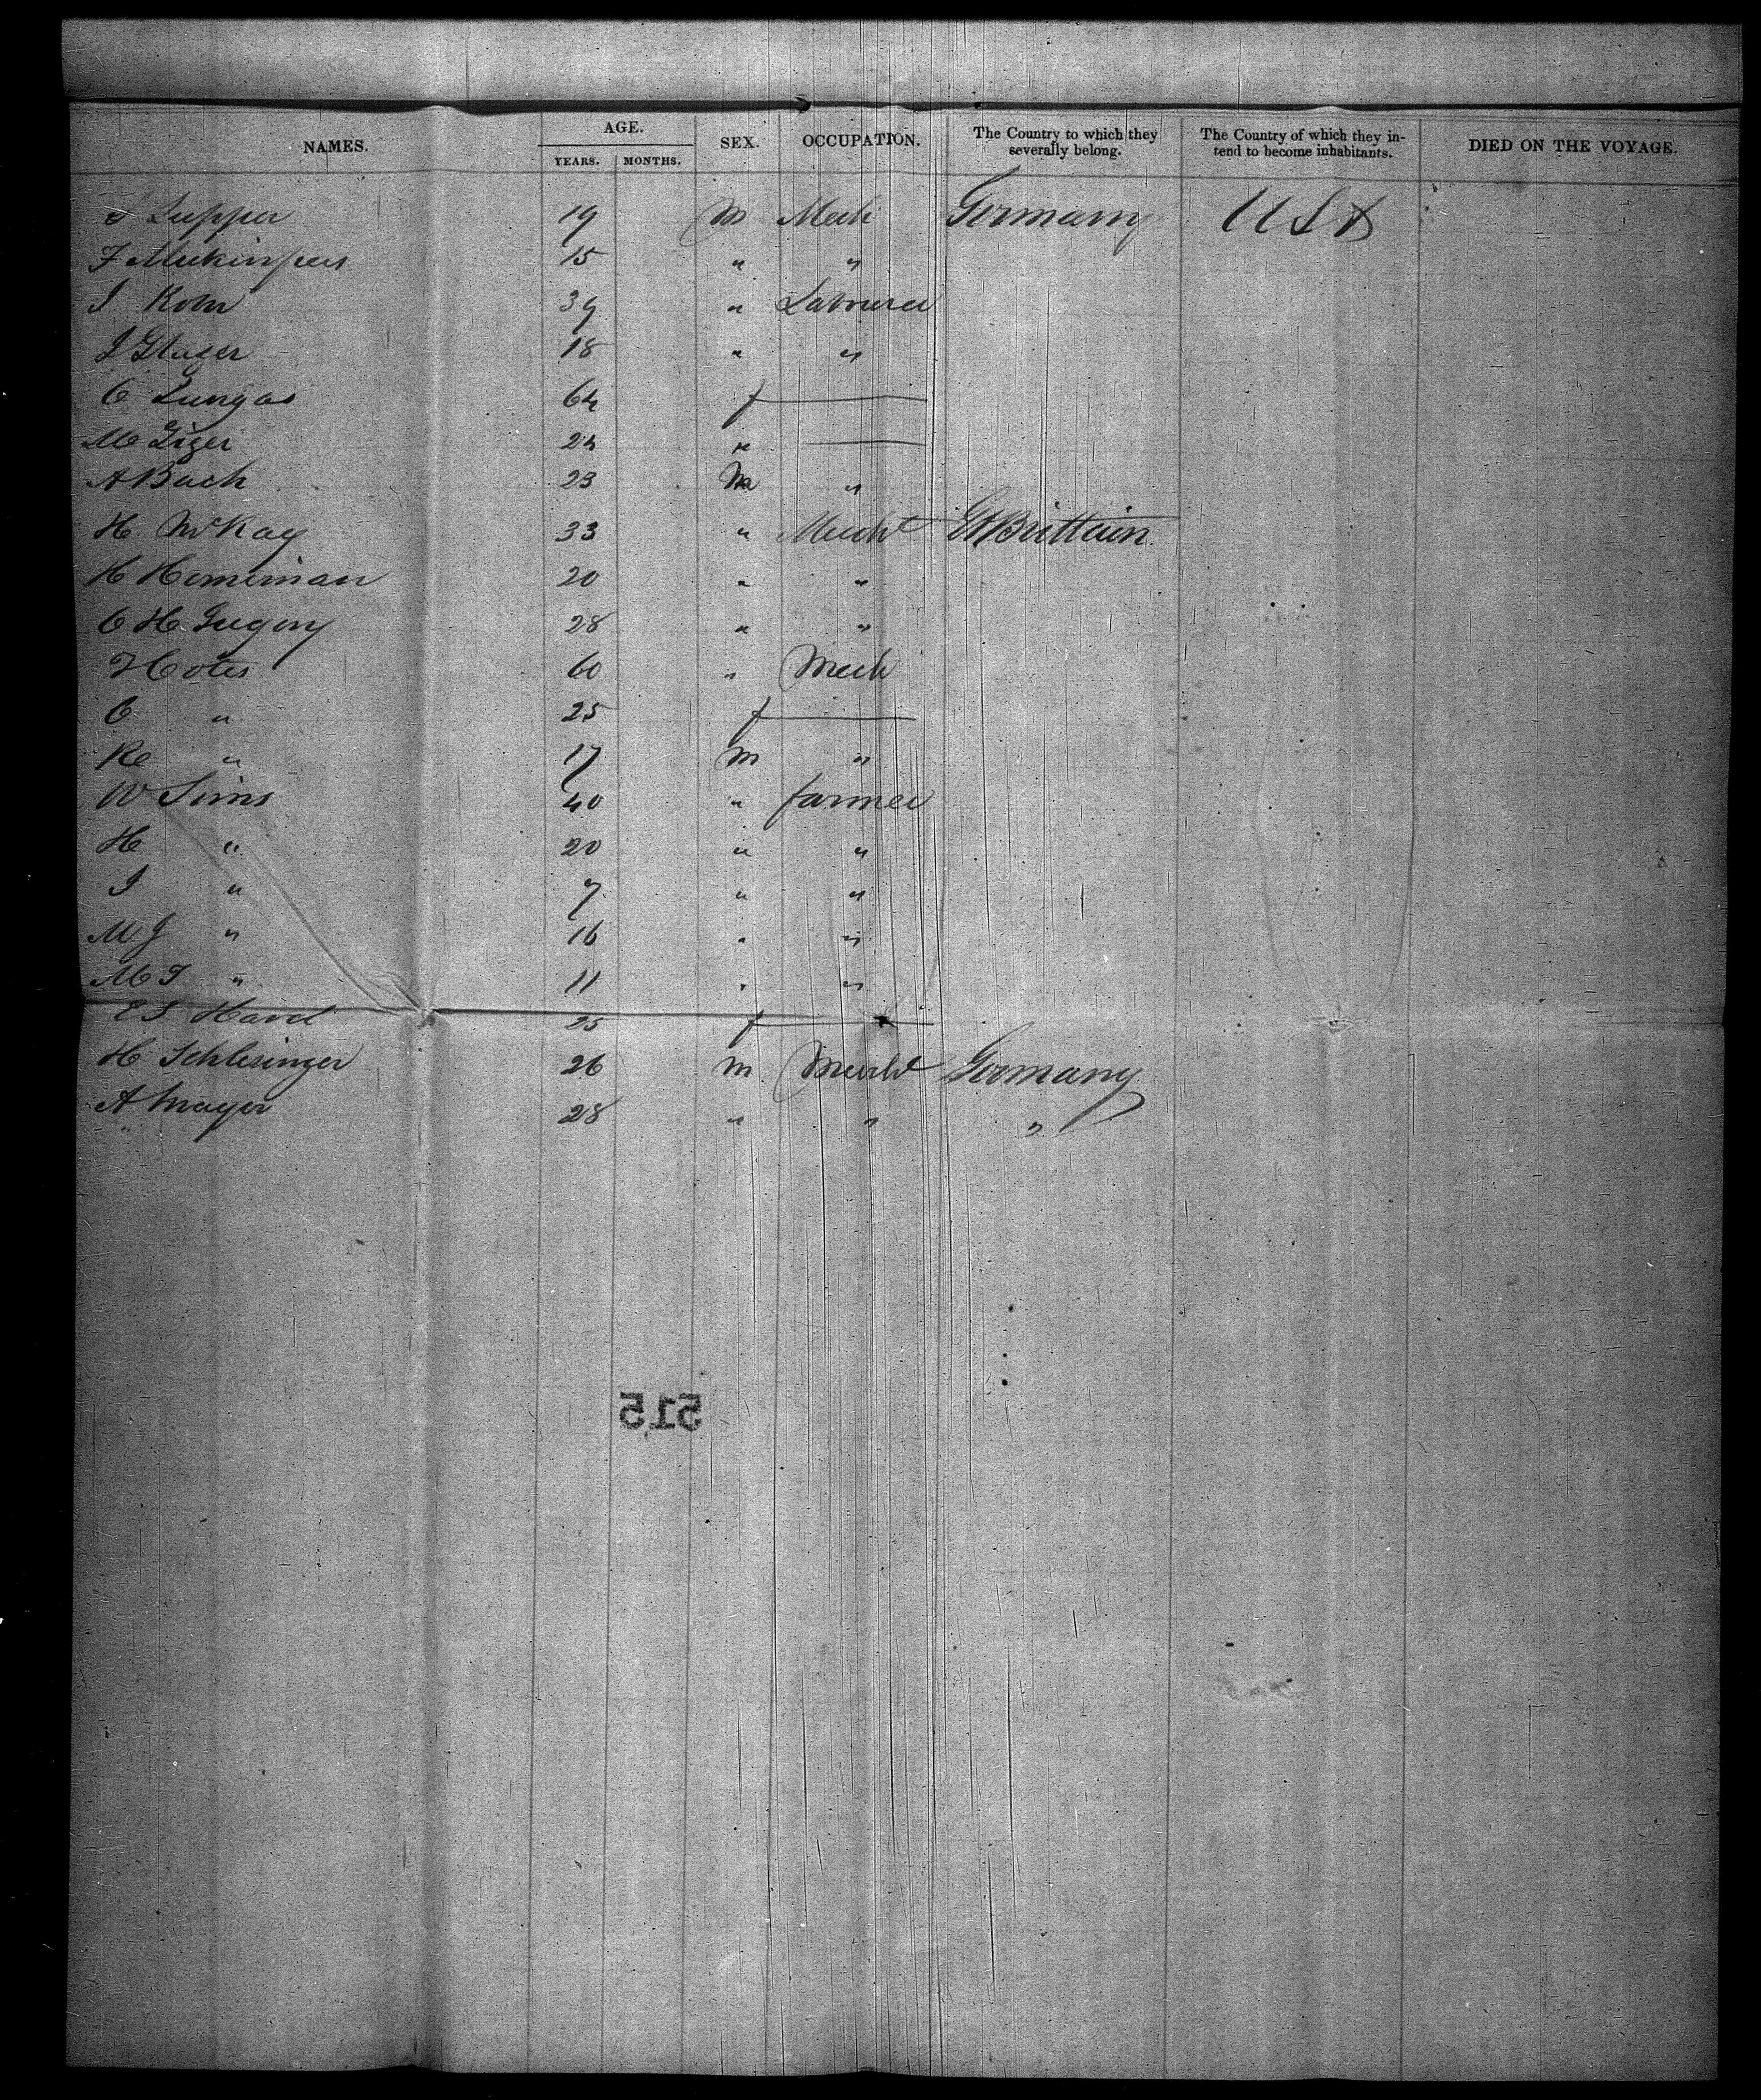 NAMES. AGE. YEARS. MONTHS. SEX. OCCUPATION. The Country to which they severally belong. The Country of which they intend to become inhabitants. DIED ON THE VOYAGE.
19 M Mech Germany U S A
15 " "
I Kohn 39 " Labourer
J Glaser 18 " "
C Lungas 64 f —
M Ziger 24 " —
A Bach 23 M "
H McKay 33 " Mercht Gt Brittain
H Horneman 20 " "
C H Gregory 28 " "
H Otes 60 " Mech
C " 25 f —
Re " 17 M "
W Sims 40 " farmer
H " 20 " "
I " 7 " "
M J " 16 " "
M I " 11 " "
E S Hand 25 f —
H Schlesinger 26 M Mercht Germany
A Mayer 28 " " "
515